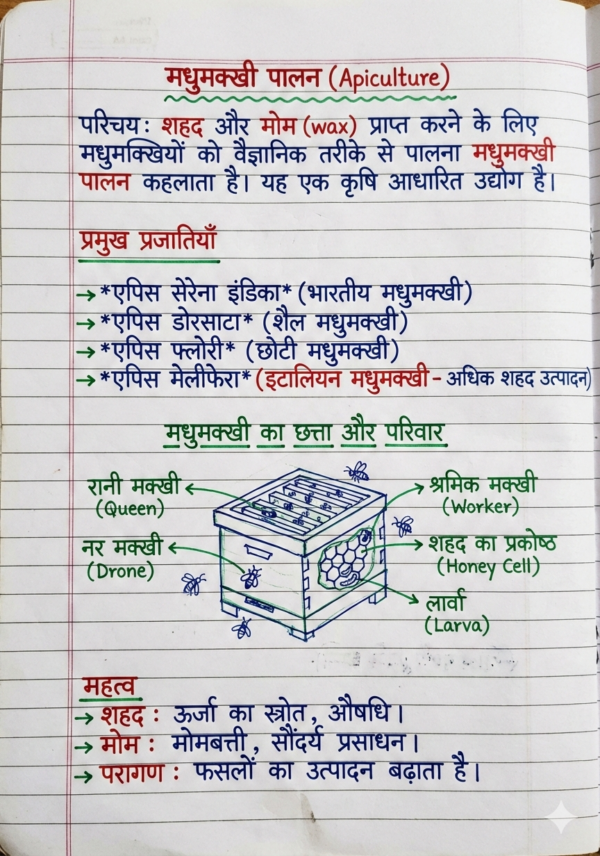 मधुमक्खी पालन (Apiculture)
परिचय: शहद और मोम (wax) प्राप्त करने के लिए
मधुमक्खियों को वैज्ञानिक तरीके से पालना मधुमक्खी
पालन कहलाता है। यह एक कृषि आधारित उद्योग है।
प्रमुख प्रजातियाँ
→ *एपिस सेरेना इंडिका* (भारतीय मधुमक्खी)
→ *एपिस डोरसाटा* (शैल मधुमक्खी)
→ *एपिस फ्लोरी* (छोटी मधुमक्खी)
→ *एपिस मेलीफेरा* (इटालियन मधुमक्खी - अधिक शहद उत्पादन)
मधुमक्खी का छत्ता और परिवार
रानी मक्खी
(Queen)
नर मक्खी
(Drone)
श्रमिक मक्खी
(Worker)
शहद का प्रकोष्ठ
(Honey Cell)
लार्वा
(Larva)
महत्व
→ शहद : ऊर्जा का स्त्रोत, औषधि।
→ मोम : मोमबत्ती, सौंदर्य प्रसाधन।
→ परागण : फसलों का उत्पादन बढ़ाता है।